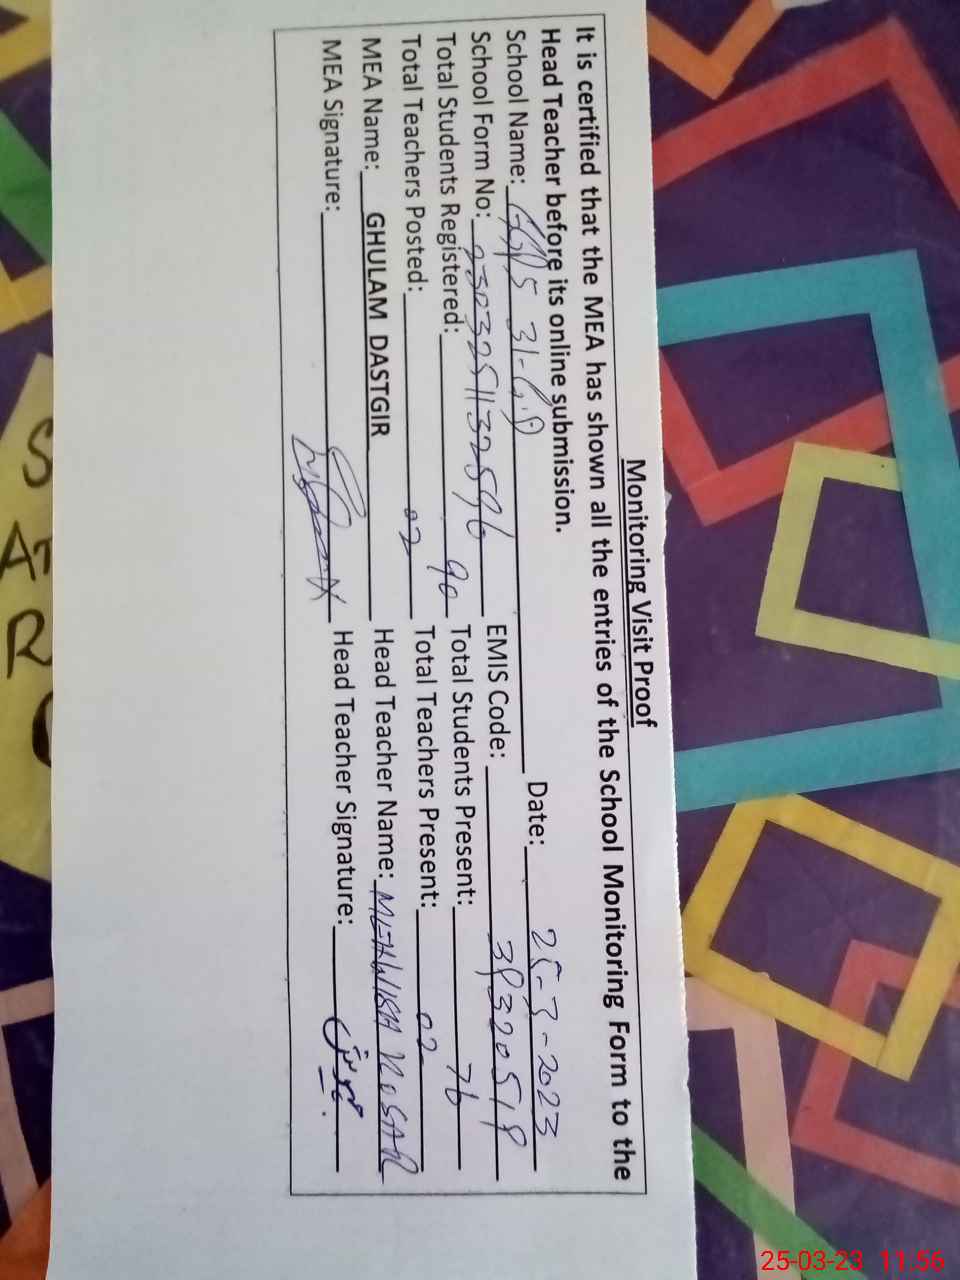 Monitoring Visit Proof
It is certified that the MEA has shown all the entries of the School Monitoring Form to the
Head Teacher before its online submission.
School Name: GGPS 31-GD Date: 25-3-2023
School Form No: EMIS Code:
Total Students Registered: 90 Total Students Present: 76
Total Teachers Posted: 02 Total Teachers Present: 02
MEA Name: GHULAM DASTGIR Head Teacher Name: MEHWISH
MEA Signature: Head Teacher Signature: مہوش
S
AT
R
25-03-23 11:56